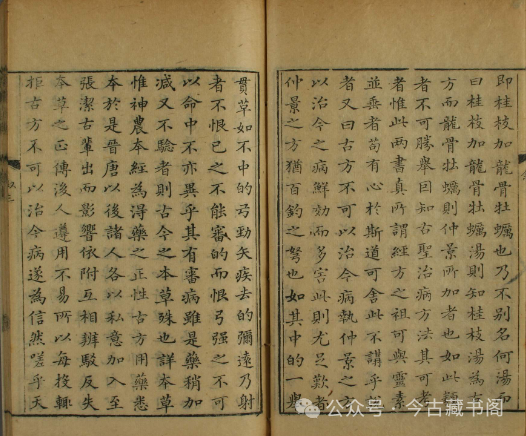 即桂枝加龍骨牡蠣也乃不别名何湯而
曰桂枝加龍骨牡蠣湯則知桂枝湯為古
方而龍骨牡蠣則仲景所加者也如此類
者不可勝舉因知古聖治病方法其可考
者惟此兩書真所謂經方之祖可與靈素
並垂者苟有心於斯道可舍此不講乎
者又曰古方不可以治今病執仲景之方
以治今之病鮮効而多害此則尤足歎者
仲景之方猶百鈞之弩也如其中的一舉
貫草如不中的弓勁矢疾去的彌遠乃射
者不恨已之不能審的而恨弓强之不可
以命中不亦異乎其有審病雖是藥稍加
减又不驗者則古今之本草殊也詳本草
惟神農本經為得藥之正性古方用藥悉
本於是晉唐以後諸人各以私意加入至
張潔古輩出而影響依附互相辨駁反失
本草之正傳後人遵用不易所以每投輒
拒古方不可以治今病遂為信然嗟乎天
公众号 · 今古藏书阁